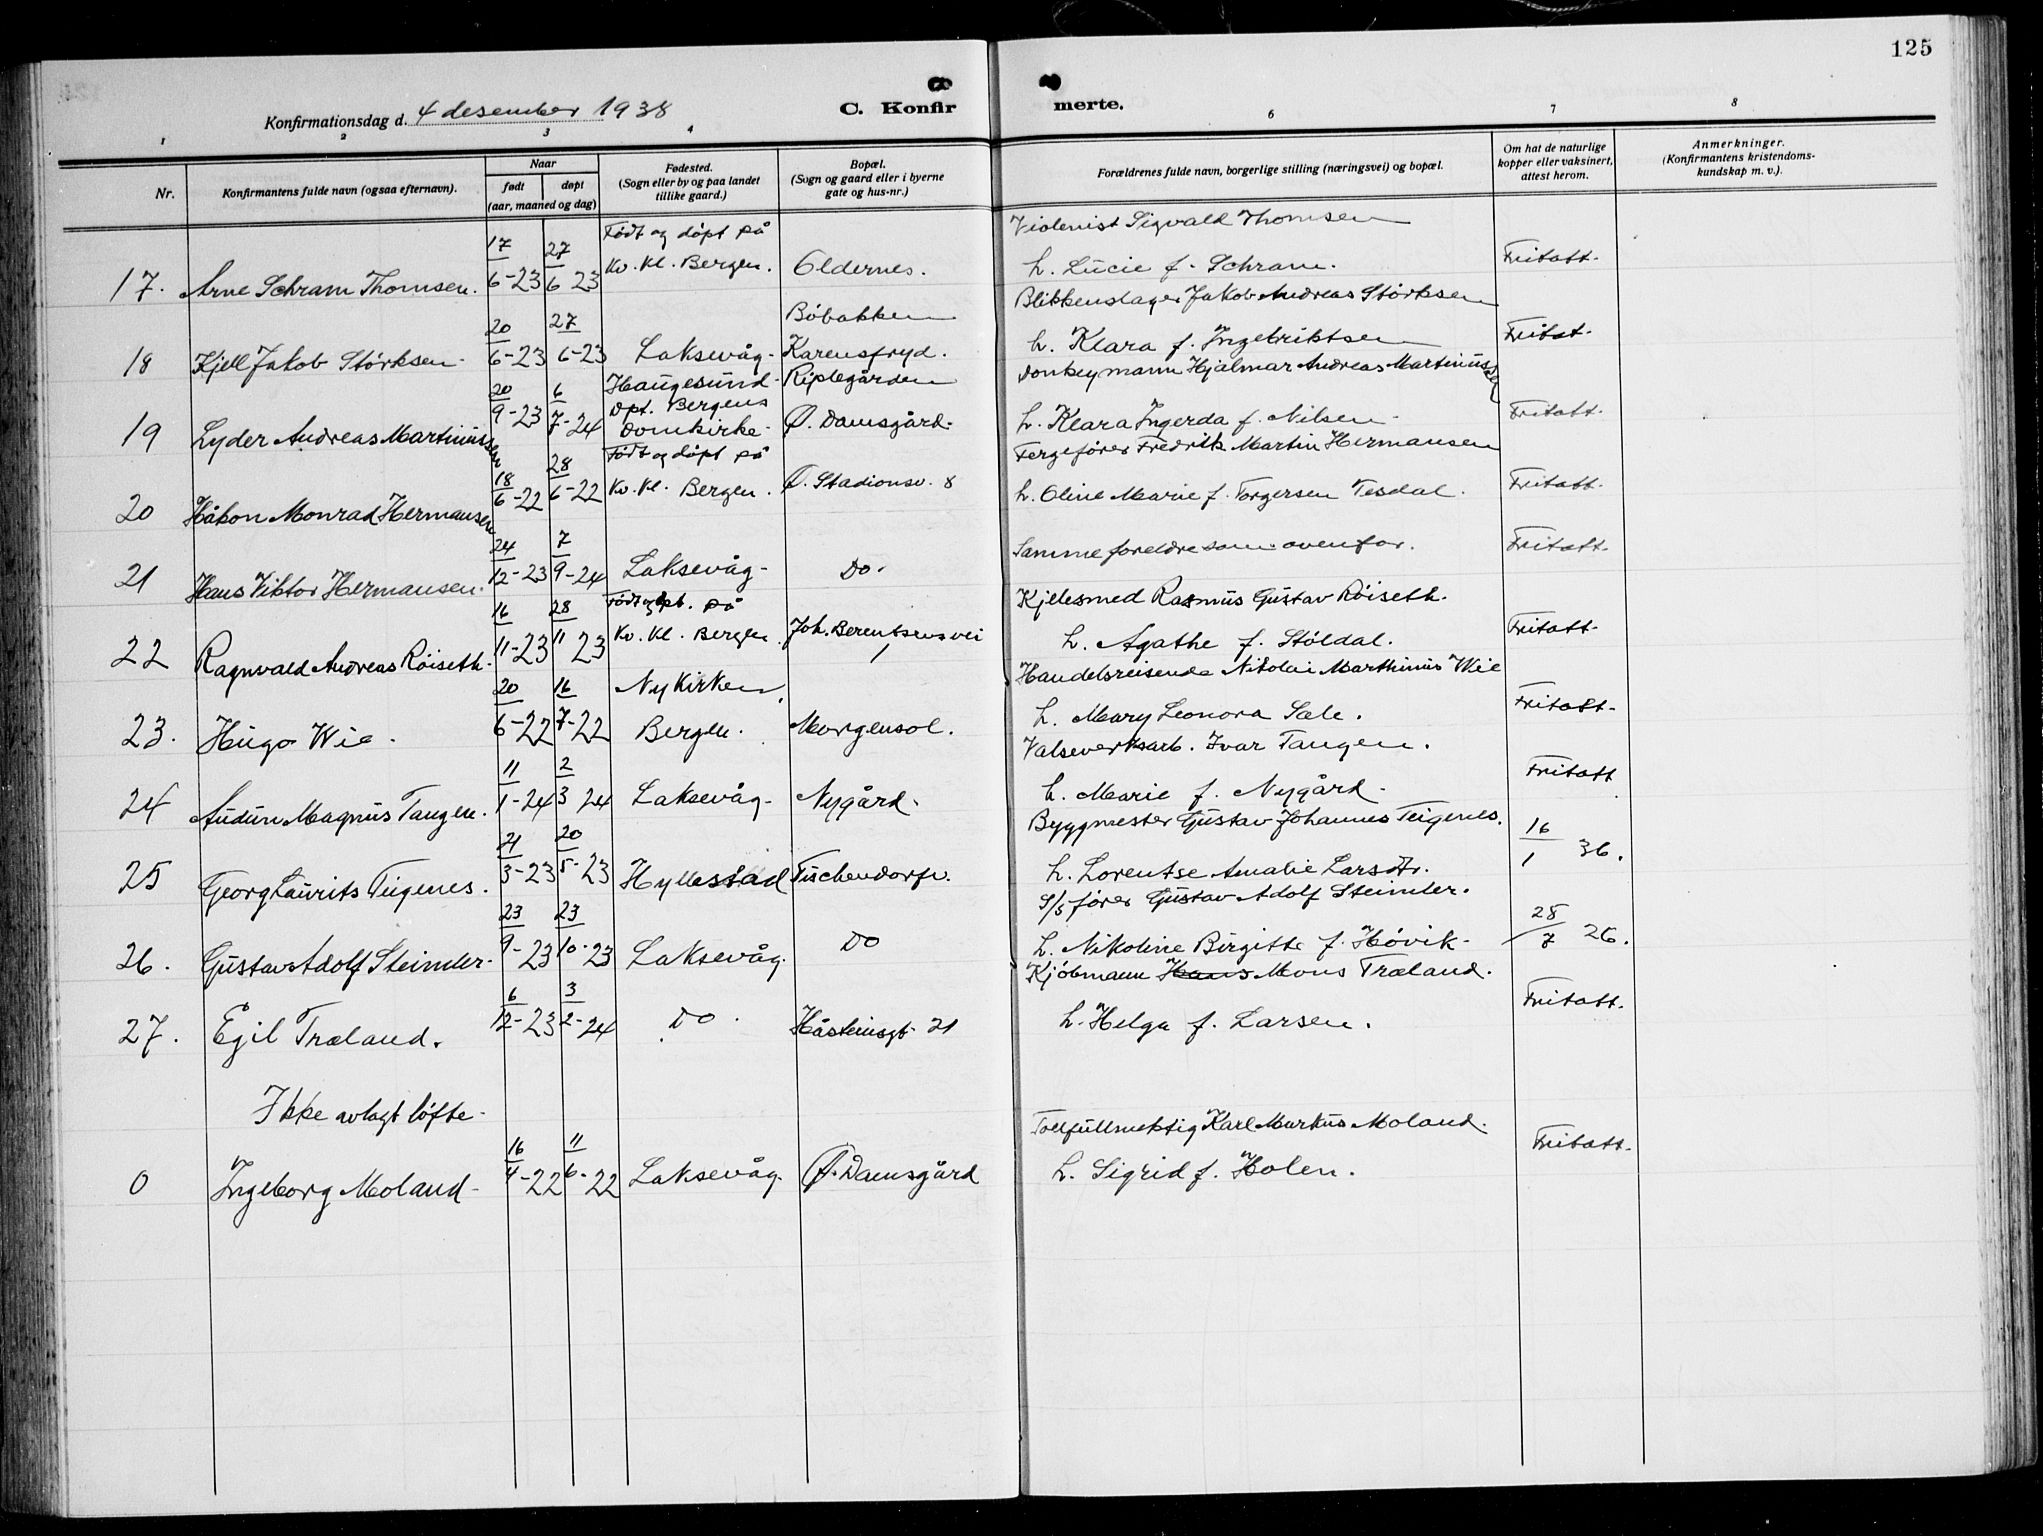 125
Konfirmationsdag d. 4 desember 1938
C. Konfirmerte.
1 2 3 4 6 7 8
Nr.
Konfirmantens fulde navn (ogsaa efternavn).
Naar
født døpt
(aar, maaned og dag)
Fødested.
(Sogn eller by og paa landet
tillike gaard.)
Bopæl.
(Sogn og gaard eller i byerne
gate og hus-nr.)
Forældrenes fulde navn, borgerlige stilling (næringsvei) og bopæl.
Om hat de naturlige
kopper eller vaksinert,
attest herom.
Anmerkninger.
(Konfirmantens kristendoms-
kundskap m. v.).
Født og døpt på Violenist Sigvald Thomsen
17. Arne Schram Thomsen. 17/6-23 27/6 23 Kv. Kl. Bergen. Oldernes. h. Lucie f. Schram. Fritatt.
Böbakken Blikkenslager Jakob Andreas Störksen
18 Kjell Jakob Störksen. 20/6-23 27/6-23 Laksevåg. Karensfryd. h. Klara f. Ingebriktsen Fritat.
Haugesund. Riplegården Donkeymann Hjalmar Andreas Martinussen
Dpt. Bergens
19 Lyder Andreas Martinussen 20/9-23 6/7-24 Domkirke. Ø. Damsgård. h. Klara Ingerda f. Nilsen. Fritatt.
Født og døpt på Fergefører Fredrik Martin Hermansen
20 Håkon Monrad Hermansen 18/6-22 28/6-22 Kv. Kl. Bergen. Ø. Stadionsv. 8 h. Oline Marie f. Torgersen Tesdal. Fritatt.
21 Hans Viktor Hermansen. 24/12-23 7/9-24 Laksevåg. Do. Samme foreldre som ovenfor. Fritatt.
Født og dpt. på Kjelesmed Rasmus Gustav Röiseth.
22 Ragnvald Andreas Röiseth. 16/11-23 28/11 23 Kv. Kl. Bergen. Joh. Berentsens vei 1 h. Agathe f. Stöldal. Fritatt.
Nykirken, Handelsreisende Nikolai Marthinus Wie
23. Hugo Wie. 20/6-22 16/7-22 Bergen. Morgensol. h. Mary Leonora Sæle. Fritatt.
Valseverksarb. Ivar Tangen.
24 Audun Magnus Tangen. 11/1-24 2/3 24 Laksevåg. Nygård. h. Marie f. Nygård. Fritatt
Byggmester Gustav Johannes Teigenes.
25 Georg Laurits Teigenes. 21/3-23 20/5-23 Hyllestad Tischendorfv. h. Lorentse Amalie Larsdtr. 16/1 36.
S/S fører Gustav Adolf Steimler.
26. Gustav Adolf Steimler. 23/9-23 23/10-23 Laksevåg. Do h. Nikoline Birgitte f. Hövik. 28/7 26.
Kjöbmann Hans Mons Træland.
27. Egil Træland. 6/12-23 3/2-24 Do. Håsteinsgt. 21 h. Helga f. Larsen. Fritatt.
Ikke avlagt löfte.
Tollfullmektig Karl Markus Moland.
0 Ingeborg Moland. 16/4-22 11/6-22 Laksevåg. Ø. Damsgård h. Sigrid f. Holen. Fritatt.